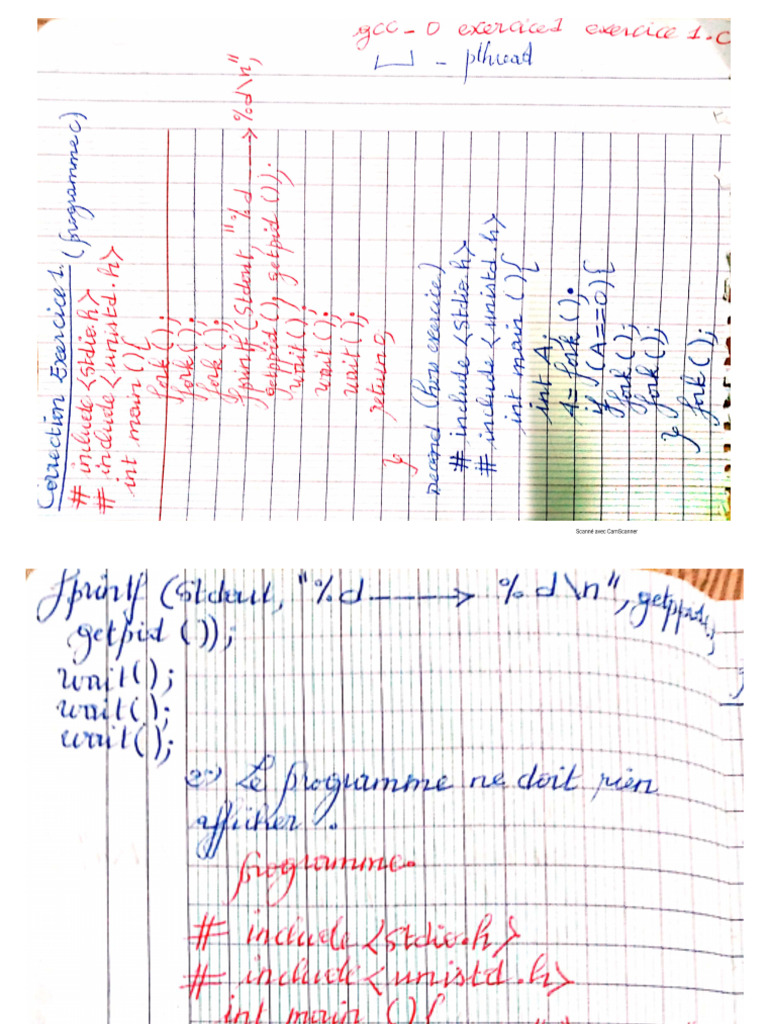 gcc - o exercice1 exercice 1.c
- pthread
Correction Exercice 1. (programme c)
# include <stdio.h>
# include <unistd.h>
int main (){
fork();
fork();
fork();
fprintf (Stdout, "%d ----> %d\n",
getppid(), getpid ());
wait();
wait();
wait();
return 0
}
second (hors exercice)
# include <stdio.h>
# include <unistd.h>
int main (){
int A;
A= fork ();
if (A==0){
fork();
fork();
}
fork ();
Scanné avec CamScanner
fprintf (Stdout, "%d ----> %d\n", getppid(),
getpid ());
wait();
wait();
wait();
2°) Le programme ne doit rien
afficher.
programme.
# include <stdio.h>
# include <unistd.h>
int main (){